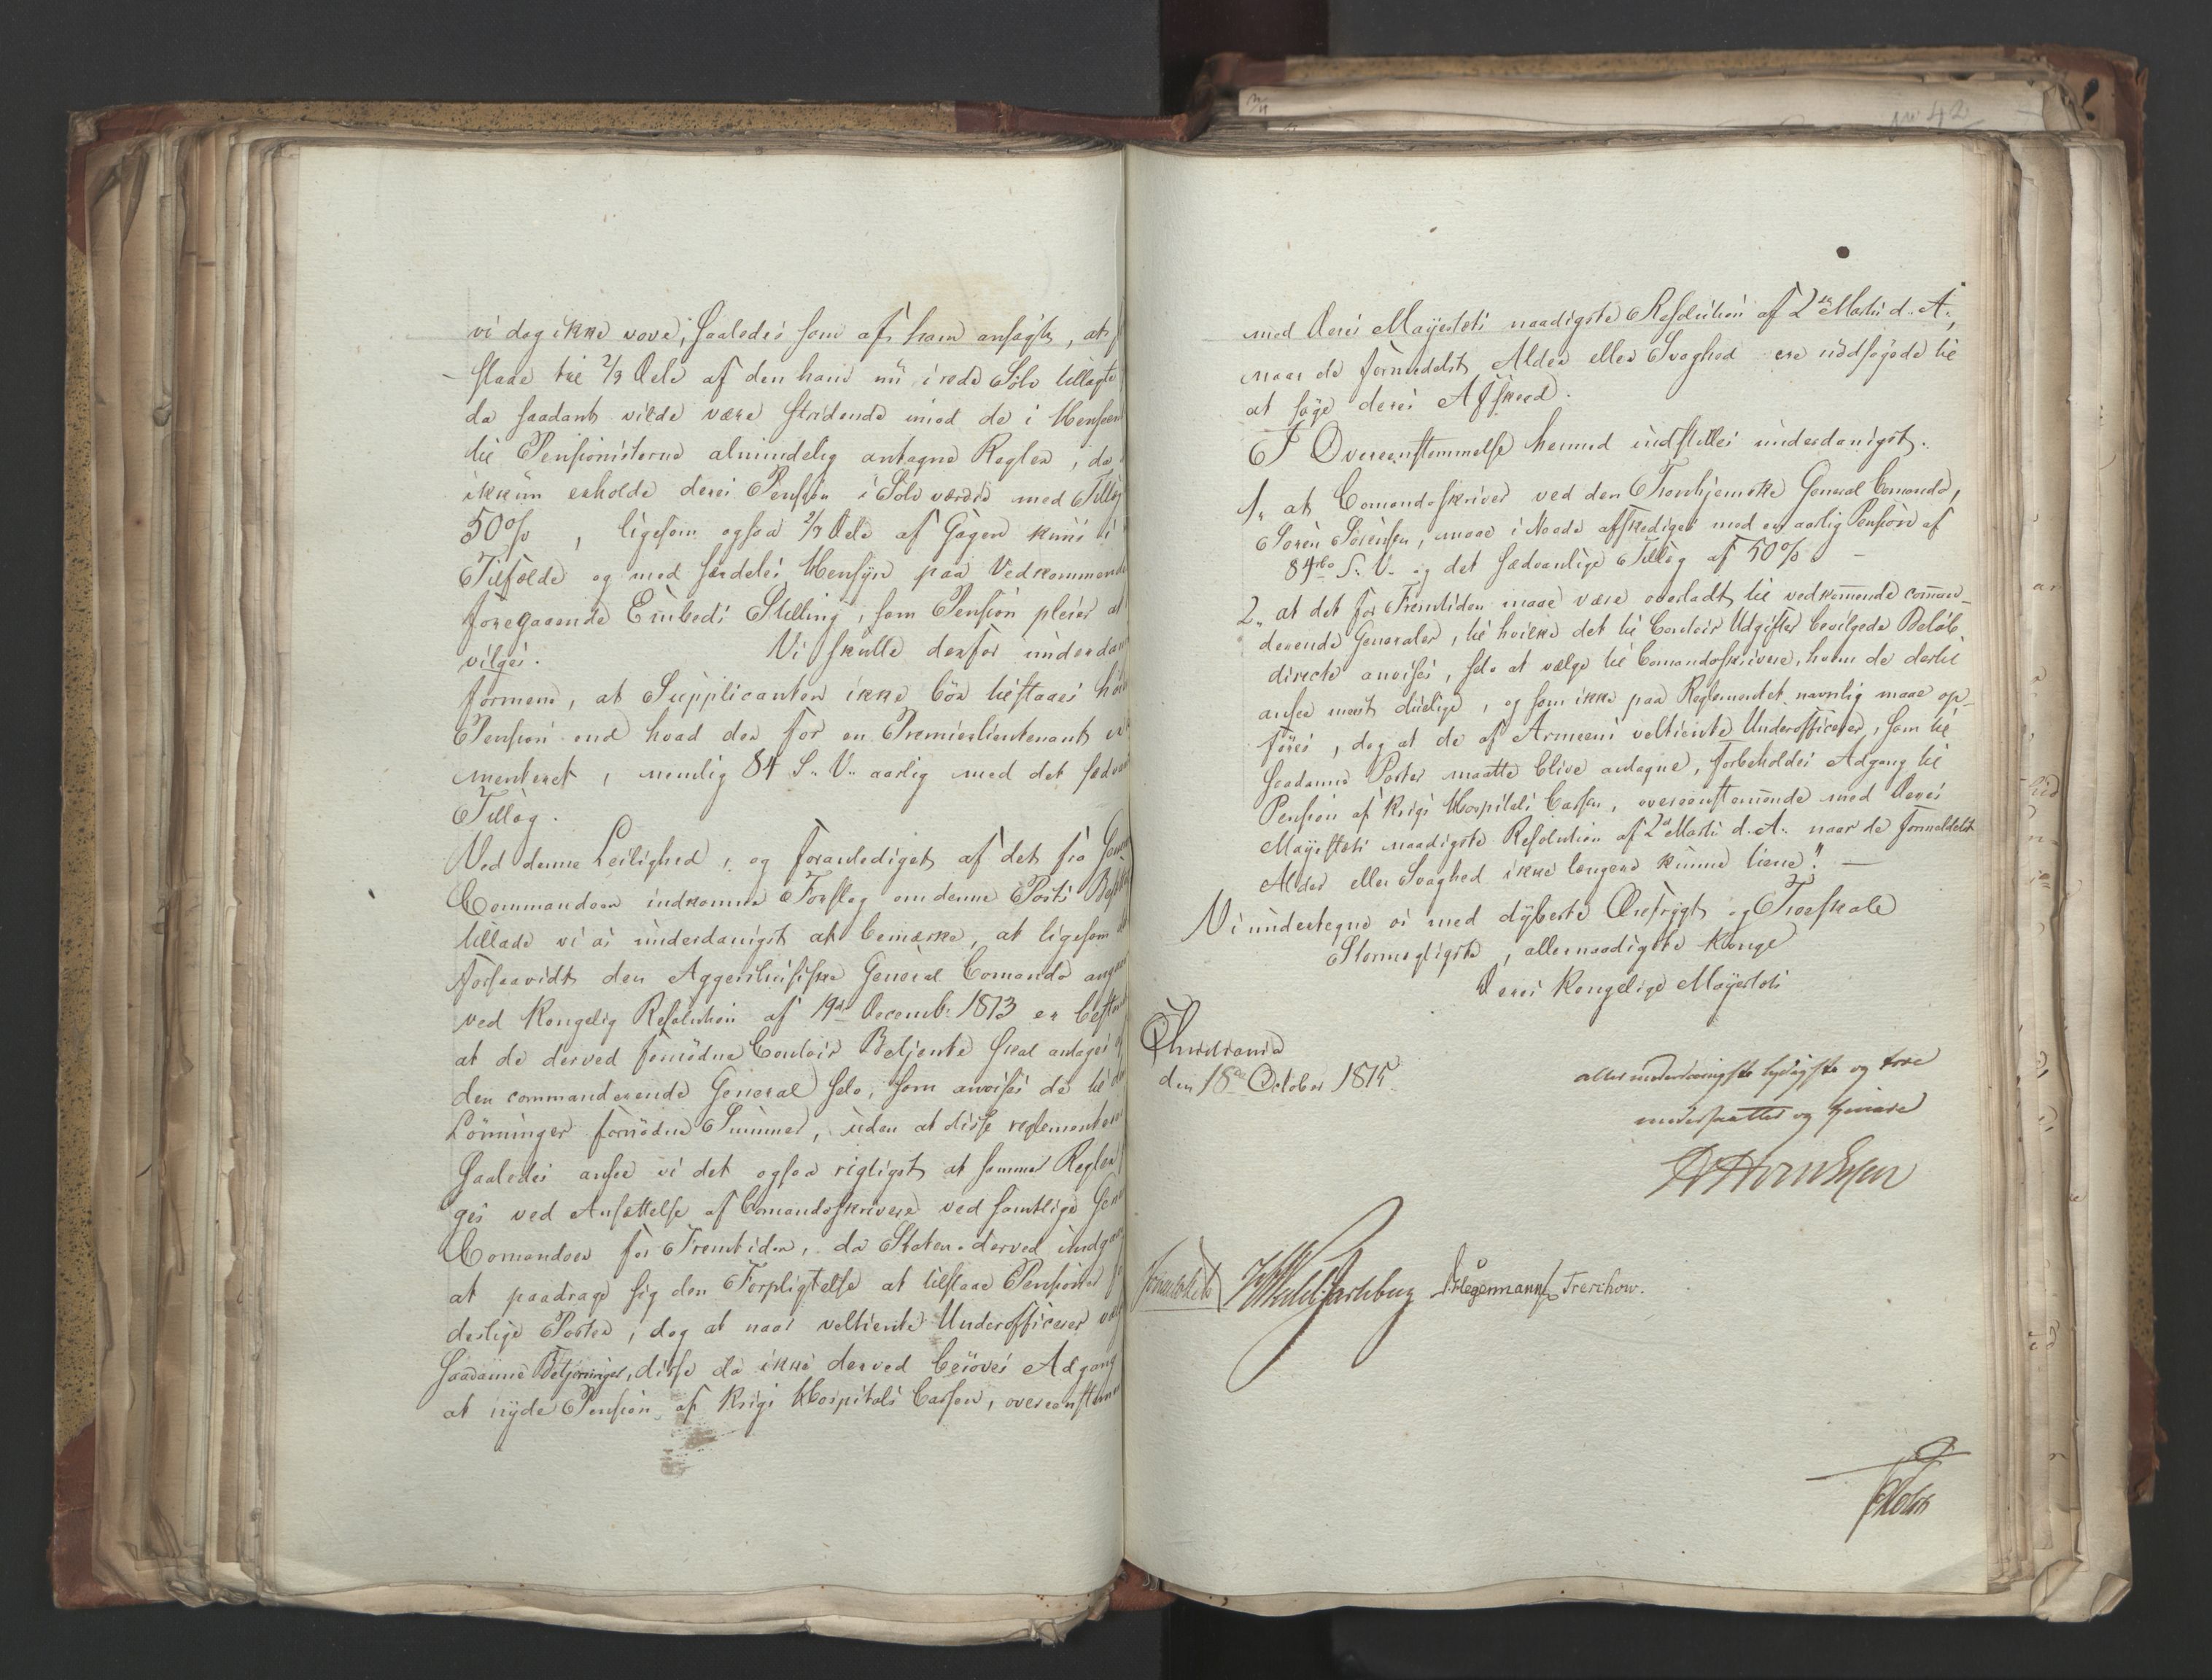 vi dog ikke vove, saaledes som af ham ansøgt, at
staae til 2/3 Dele af den ham nu i rede Sölv tillagte
da saadant vilde være stridende imod de i Henseen
til Pensionisterne almindelig antagne Regler, da
ikkun erholde deres Pension i Sölv værdie med Tillæg
50 %, ligesom ogsaa 2/3 Dele af Gagen kuns i
Tilfælde og med særdeles Hensyn paa Vedkommende
foregaaende Embeds Stilling, som Pension pleier at
vilges. Vi skulle derfor underdan
formene, at Supplicanten ikke bör tilstaaes höi
Pension end hvad der for en Premierlieutenant er
menteret, nemlig 84 S. V. aarlig med det sædvan
Tillæg.
Ved denne Leilighed, og foranlediget af det fra General
Commandoen indkomne Forslag om denne Posts
tillade vi os underdanigst at bemærke, at ligesom
forsaavidt den Aggershuusiske General Comando ang
ved Kongelig Resolution af 19de Decemb: 1813 er best
at de derved fornödne Contoir Betjente skal antages
den commanderende General selv, som anvises de til
Lönninger fornödne Summer, uden at disse reglementere
saaledes ansee vi det ogsaa rigtigst at samme Regler
ges ved Ansættelse af Comandoskrivere ved samtlige Gen
Comandoer for Fremtiden, da Staten derved undg
at paadrage sig den Forpligtelse at tilstaae Pensioner
deslige Poster, dog at naar veltiente Underofficerer
saadanne Betjeninger, disse da ikke derved beröves Adgang
at nyde Pension af Krigs Hospitals Cassen, overeenstem
No 42
med Deres Mayestets naadigste Resolution af 2den Martii d. A.,
naar de formedelst Alder eller Svaghed ere nödsagede til
at søge deres Afskeed.
I Overeenstemmelse hermed indstilles underdanigst:
1, at Comandoskriver ved den Tronhjemske General Comando,
Sören Sörensen, maae i Naade afskediges med en aarlig Pension af
84 rbd S. V. og det sædvanlige Tillæg af 50 % –
2, at det for Fremtiden maae være overladt til vedkomende comman-
derende Generaler, til hvilke det til Contoir Udgifter bevilgede Belöb
directe anvises, selv at vælge til Comandoskrivere, hvem de dertil
ansee meest duelige, og som ikke paa Reglementet navnlig maae op-
föres, dog at de af Armeens veltiente Underofficerer, som til
saadanne Poster maatte blive antagne, forbeholdes Adgang til
Pension af Krigs Hospitals Cassen, overeenstemende med Deres
Mayestets naadigste Resolution af 2den Martii d. A. naar de formedelst
Alder eller Svaghed ikke længere kunne tiene". –
Vi undertegne os med dybeste Ærefrygt og Troeskab
Stormægtigste, allernaadigste Konge
Deres Kongelige Mayestets
Christiania
den 18de October 1815.
allerunderdanigste lydigste og troe
undersaatter og tienere
Sommerhielm Wedel Jarlsberg D. Hegermann Treschow.